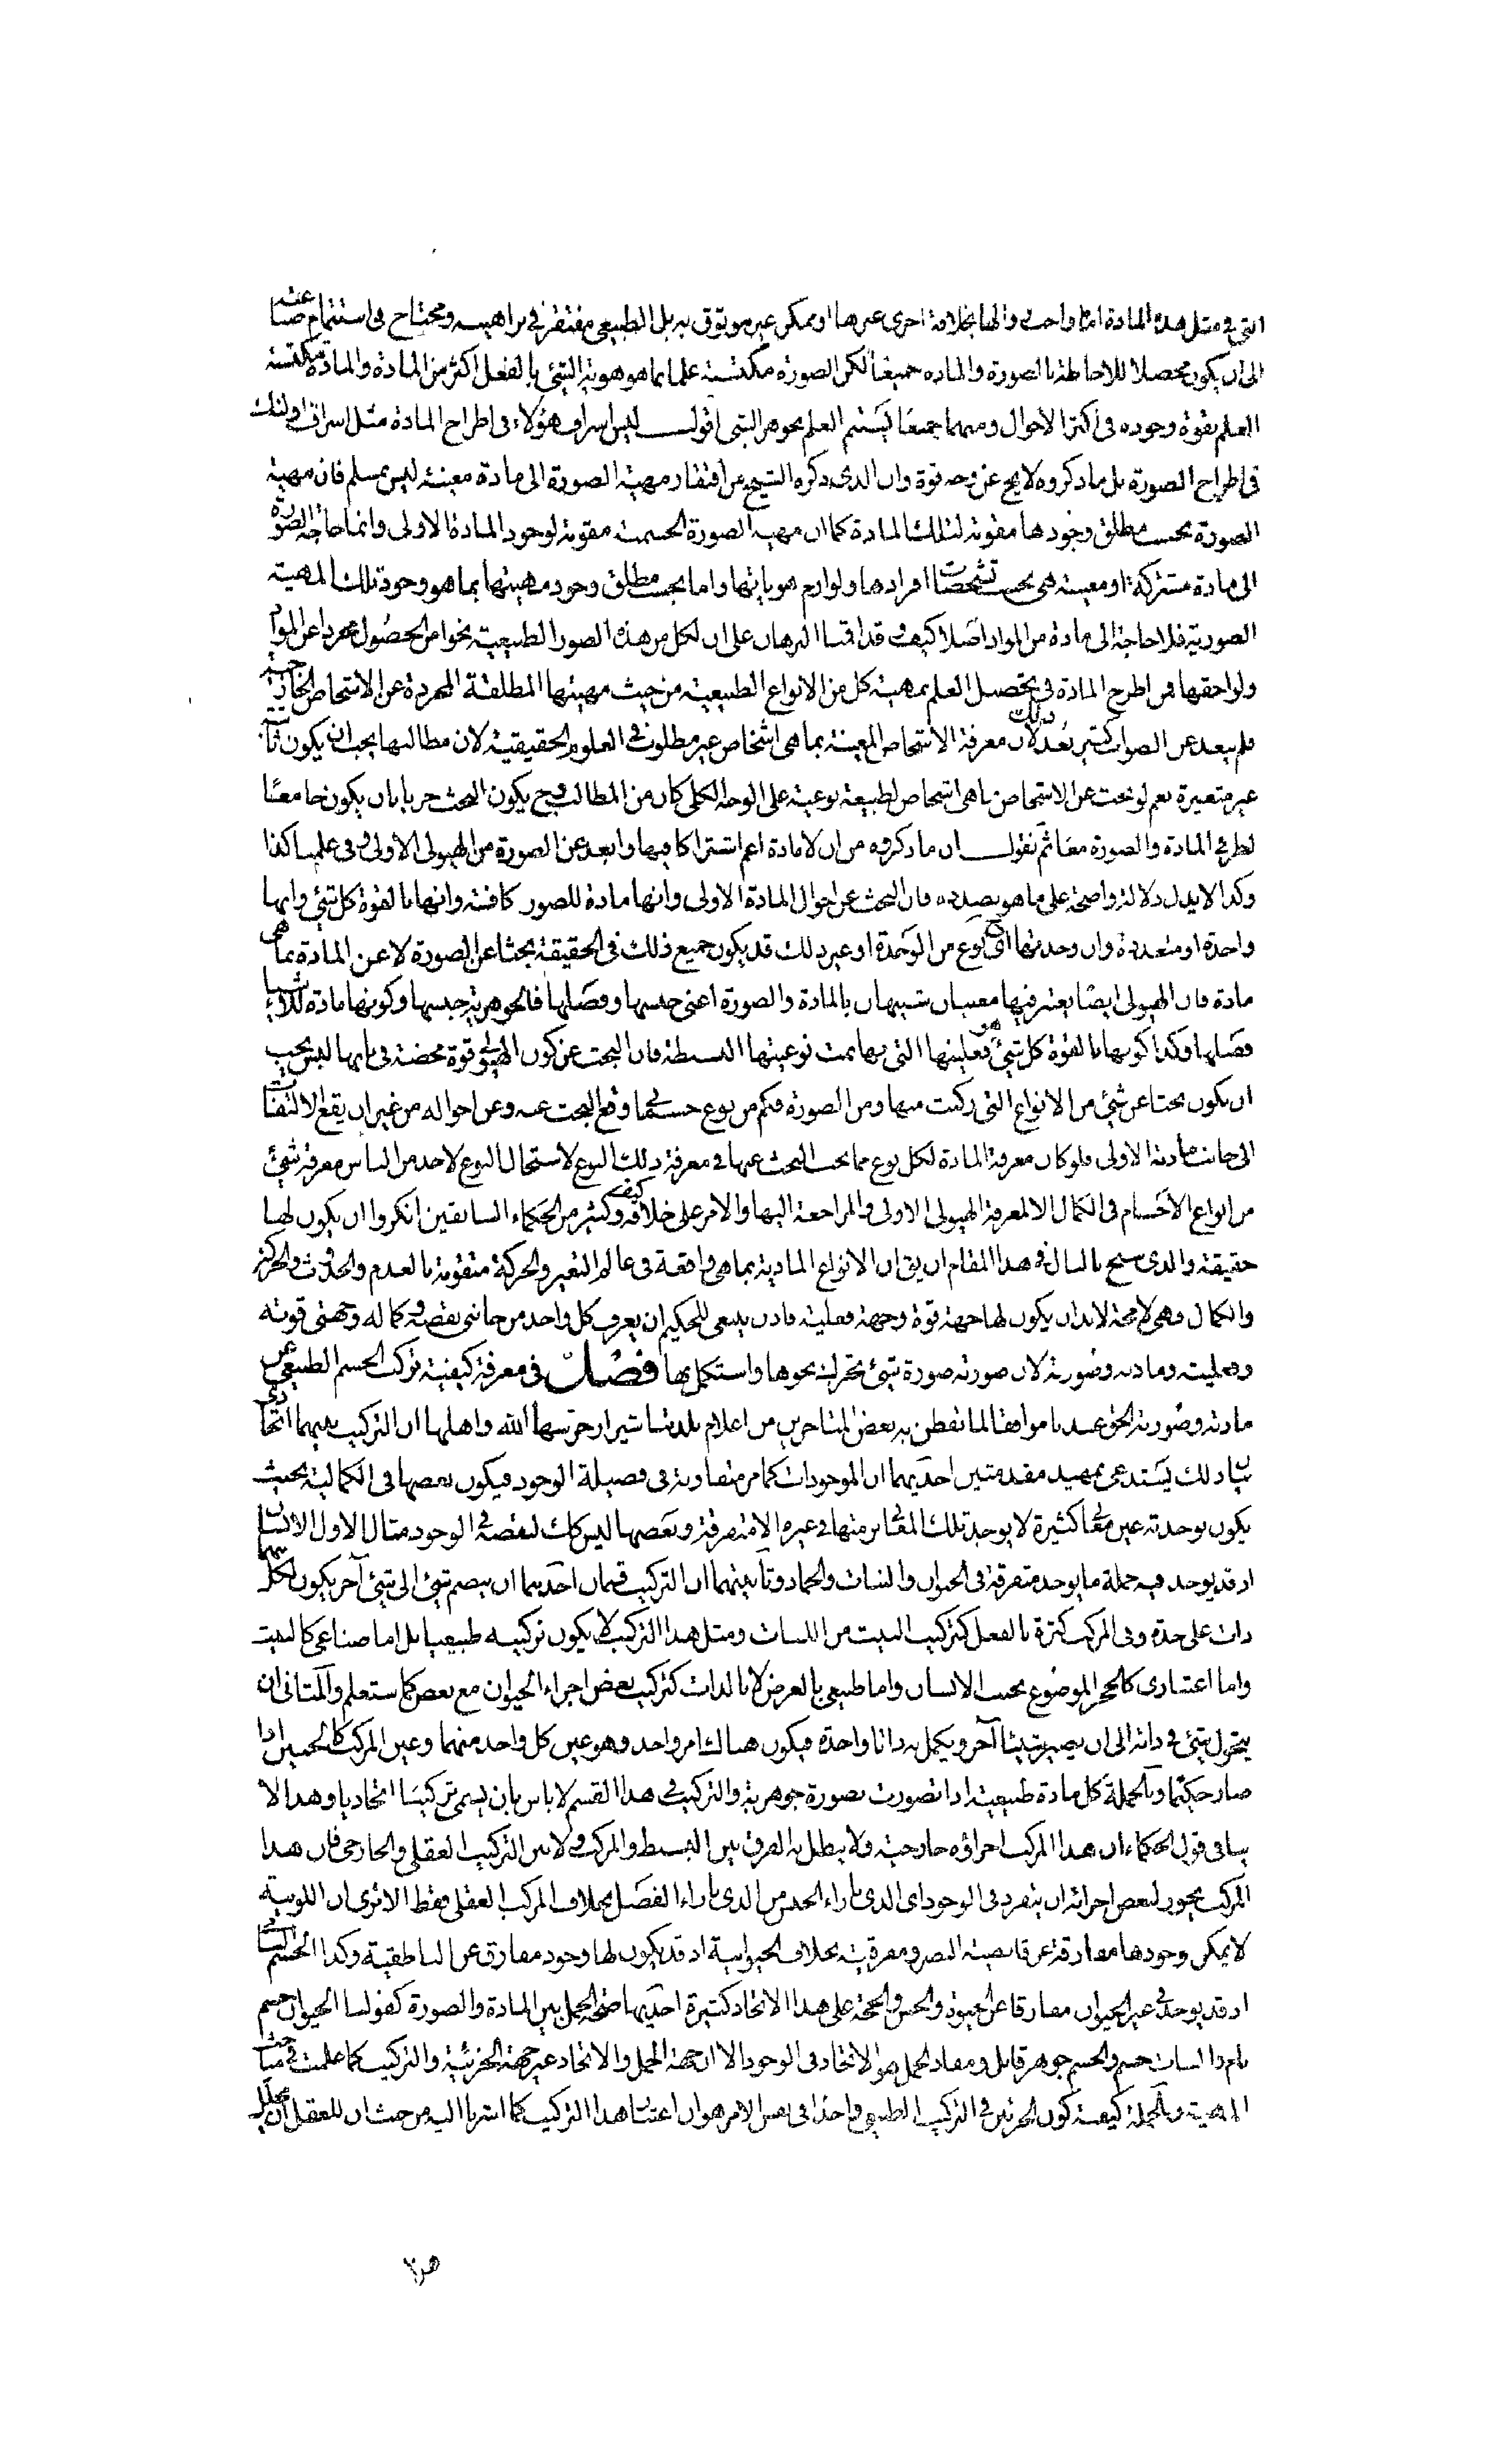 التى فى مثل هذه المادة اما واجب والها بخلافة اخرى غيرها او ممكن غير موثوق به بل الطبيعى مفتقر فى براهينه ومحتاج فى استتمام صناعته
الى ان يكون محصلا للاحاطة بالصورة والمادة جميعا لكن الصورة مكتسبة علما بما هو هوية الشئ بالفعل اكثر من المادة والمادة مكتسبة
العلم بقوة وجوده فى اكثر الاحوال ومنهما جميعا يستتم العلم بجوهر الشئ اقول ليس اسراف هؤلاء فى اطراح المادة مثل اسراف اولئك
فى اطراح الصورة بل ما ذكروه لا يخ عن وجه قوة وان الذى ذكره الشيخ من افتقار مهية الصورة الى مادة معينة ليس بمسلم فان مهية
الصورة بحسب مطلق وجودها مقومة لتلك المادة كما ان مهية الصورة الجسمية مقومة لوجود المادة الاولى وانما حاجة الصورة
الى مادة مشتركة او معينة هى بحسب تشخصات افرادها ولوازم هوياتها واما بحسب مطلق وجود مهيتها بما هو وجود تلك المهية
الصورية فلا حاجة الى مادة من المواد اصلا كيف وقد اقمنا البرهان على ان لكل من هذه الصور الطبيعية نحوا من الحصول مجرد عن المواد
ولواحقها فمن اطرح المادة فى تحصيل العلم بمهية كل من الانواع الطبيعية من حيث مهيتها المطلقة المجردة عن الاشخاص الخارجية
فلم يبعد عن الصواب كثير بعد وذلك لان معرفة الاشخاص المعينة بما هى اشخاص غير مطلوب فى العلوم الحقيقية لان مطالبها يجب ان يكون ثابتة
غير متغيرة نعم لو بحث عن الاشخاص بما هى اشخاص لطبيعة نوعية على الوجه الكلى كان من المطالب وح يكون البحث حريا بان يكون جامعا
لطرفى المادة والصورة معا ثم نقول ان ما ذكروه من ان لا مادة اعم اشتراكا فيها وابعد عن الصورة من الهيولى الاولى وفى علمنا كذا
وكذا لا يدل دلالة واضحة على ما هو بصدده فان البحث عن احوال المادة الاولى وانها مادة للصور كافة وانها بالقوة كل شئ وانها
واحدة او متعددة وان وحدتها اى نوع من الوحدة او غير ذلك قد يكون جميع ذلك فى الحقيقة بحثا عن الصورة لا عن المادة بما هى
مادة فان الهيولى ايضا يعتبر فيها معنيان شبيهان بالمادة والصورة اعنى جنسها وفصلها فالجوهرية جنسها وكونها مادة للاشياء
فصلها وكذا كونها بالقوة كل شئ هو فعليتها التى بها تمت نوعيتها البسيطة فان البحث عن كون الهيولى قوة محضة فى بابها ليس يجب
ان يكون بحثا عن شئ من الانواع التى ركبت منها ومن الصورة فكم من نوع جسمانى وقع البحث عنه وعن احواله من غير ان يقع الالتفات
الى جانب مادته الاولى فلو كان معرفة المادة لكل نوع مما يجب البحث عنها فى معرفة ذلك النوع لاستحال النوع لاحد من الناس معرفة شئ
من انواع الاجسام فى الكمال الا لمعرفة الهيولى الاولى والمراجعة اليها والامر على خلافه كيف وكثير من الحكماء السابقين انكروا ان يكون لها
حقيقة والذى سنح بالبال فى هذا المقام ان يق ان الانواع المادية بما هى واقعة فى عالم التغير والحركة متقومة بالعدم والحدوث والحركة
والكمال فهى لا محة لابد ان يكون لها جهة قوة وجهة فعلية فاذن ينبغى للحكيم ان يعرف كل واحد من جانبى نقصه وكماله وجهتى قوته
وفعليته ومادته وصورته لان صورته صورة شئ تحركت نحوها واستكمل بها فصل فى معرفة كيفية تركب الجسم الطبيعى عن
مادته وصورته الحق عندنا موافقا لما تفطن به بعض المتاخرين من اعلام بلدتنا شيراز حرسها الله واهلها ان التركيب بينهما اتحادى
بيان ذلك يستدعى تمهيد مقدمتين احديهما ان الموجودات كما مر متفاوتة فى فضيلة الوجود فيكون بعضها فى الكمالية بحيث
يكون بوحدته عين معانى كثيرة لا يوجد تلك المعانى منها فى غيره الا متفرقة وبعضها ليس كك لنقصه فى الوجود مثال الاول الانسان
اذ قد يوجد فيه جملة ما يوجد متفرقة فى الحيوان والنبات والجماد وثانيتهما ان التركيب قسمان احديهما ان ينضم شئ الى شئ آخر يكون لكل منهما
ذات على حدة وفى المركب كثرة بالفعل كتركيب البيت من اللبنات ومثل هذا التركيب لا يكون تركيبه طبيعيا بل اما صناعى كالبيت
واما اعتبارى كالحجر الموضوع بجنب الانسان واما طبيعى بالعرض لا بالذات كتركيب بعض اجزاء الحيوان مع بعض كما ستعلم والثانى ان
يتحول شئ فى ذاته الى ان يصير شيئا آخر ويكمل به ذاتا واحدة فيكون هناك امر واحد وهو عين كل واحد منهما وعين المركب كالجنين اذا
صار حكيما وبالجملة كل مادة طبيعية اذا تصورت بصورة جوهرية والتركيب فى هذا القسم لا باس بان يسمى تركيبا اتحاديا وهذا لا
ينافى قول الحكماء ان هذا المركب اجزاؤه خارجية ولا يبطل به الفرق بين البسيط والمركب ولا بين التركيب العقلى والخارجى فان هذا
المركب يجوز لبعض اجزائه ان ينفرد فى الوجود اى الذى بازاء الجنس من الذى بازاء الفصل بخلاف المركب العقلى فقط الا ترى ان اللونية
لا يمكن وجودها مفارقة عن قابضية البصر ومفرقيته بخلاف الحيوانية اذ قد يكون لها وجود مفارق عن الناطقية وكذا الجسم النامى
اذ قد يوجد فى غير الحيوان مفارقا عن الحيوة والحس والحجة على هذا الاتحاد كثيرة احديها صحة الحمل بين المادة والصورة كقولنا الحيوان جسم
نام والنبات جسم والجسم جوهر قابل ومفاد الحمل هو الاتحاد فى الوجود الا ان جهة الحمل والاتحاد غير جهة الجزئية والتركيب كما علمت فى مباحث
المهية وبالجملة كيفية كون الجزئين فى التركيب الطبيعى واحدا فى نفس الامر هو ان اعتبارنا هذا التركيب كما اشرنا اليه من حيث ان للعقل ان يحلل